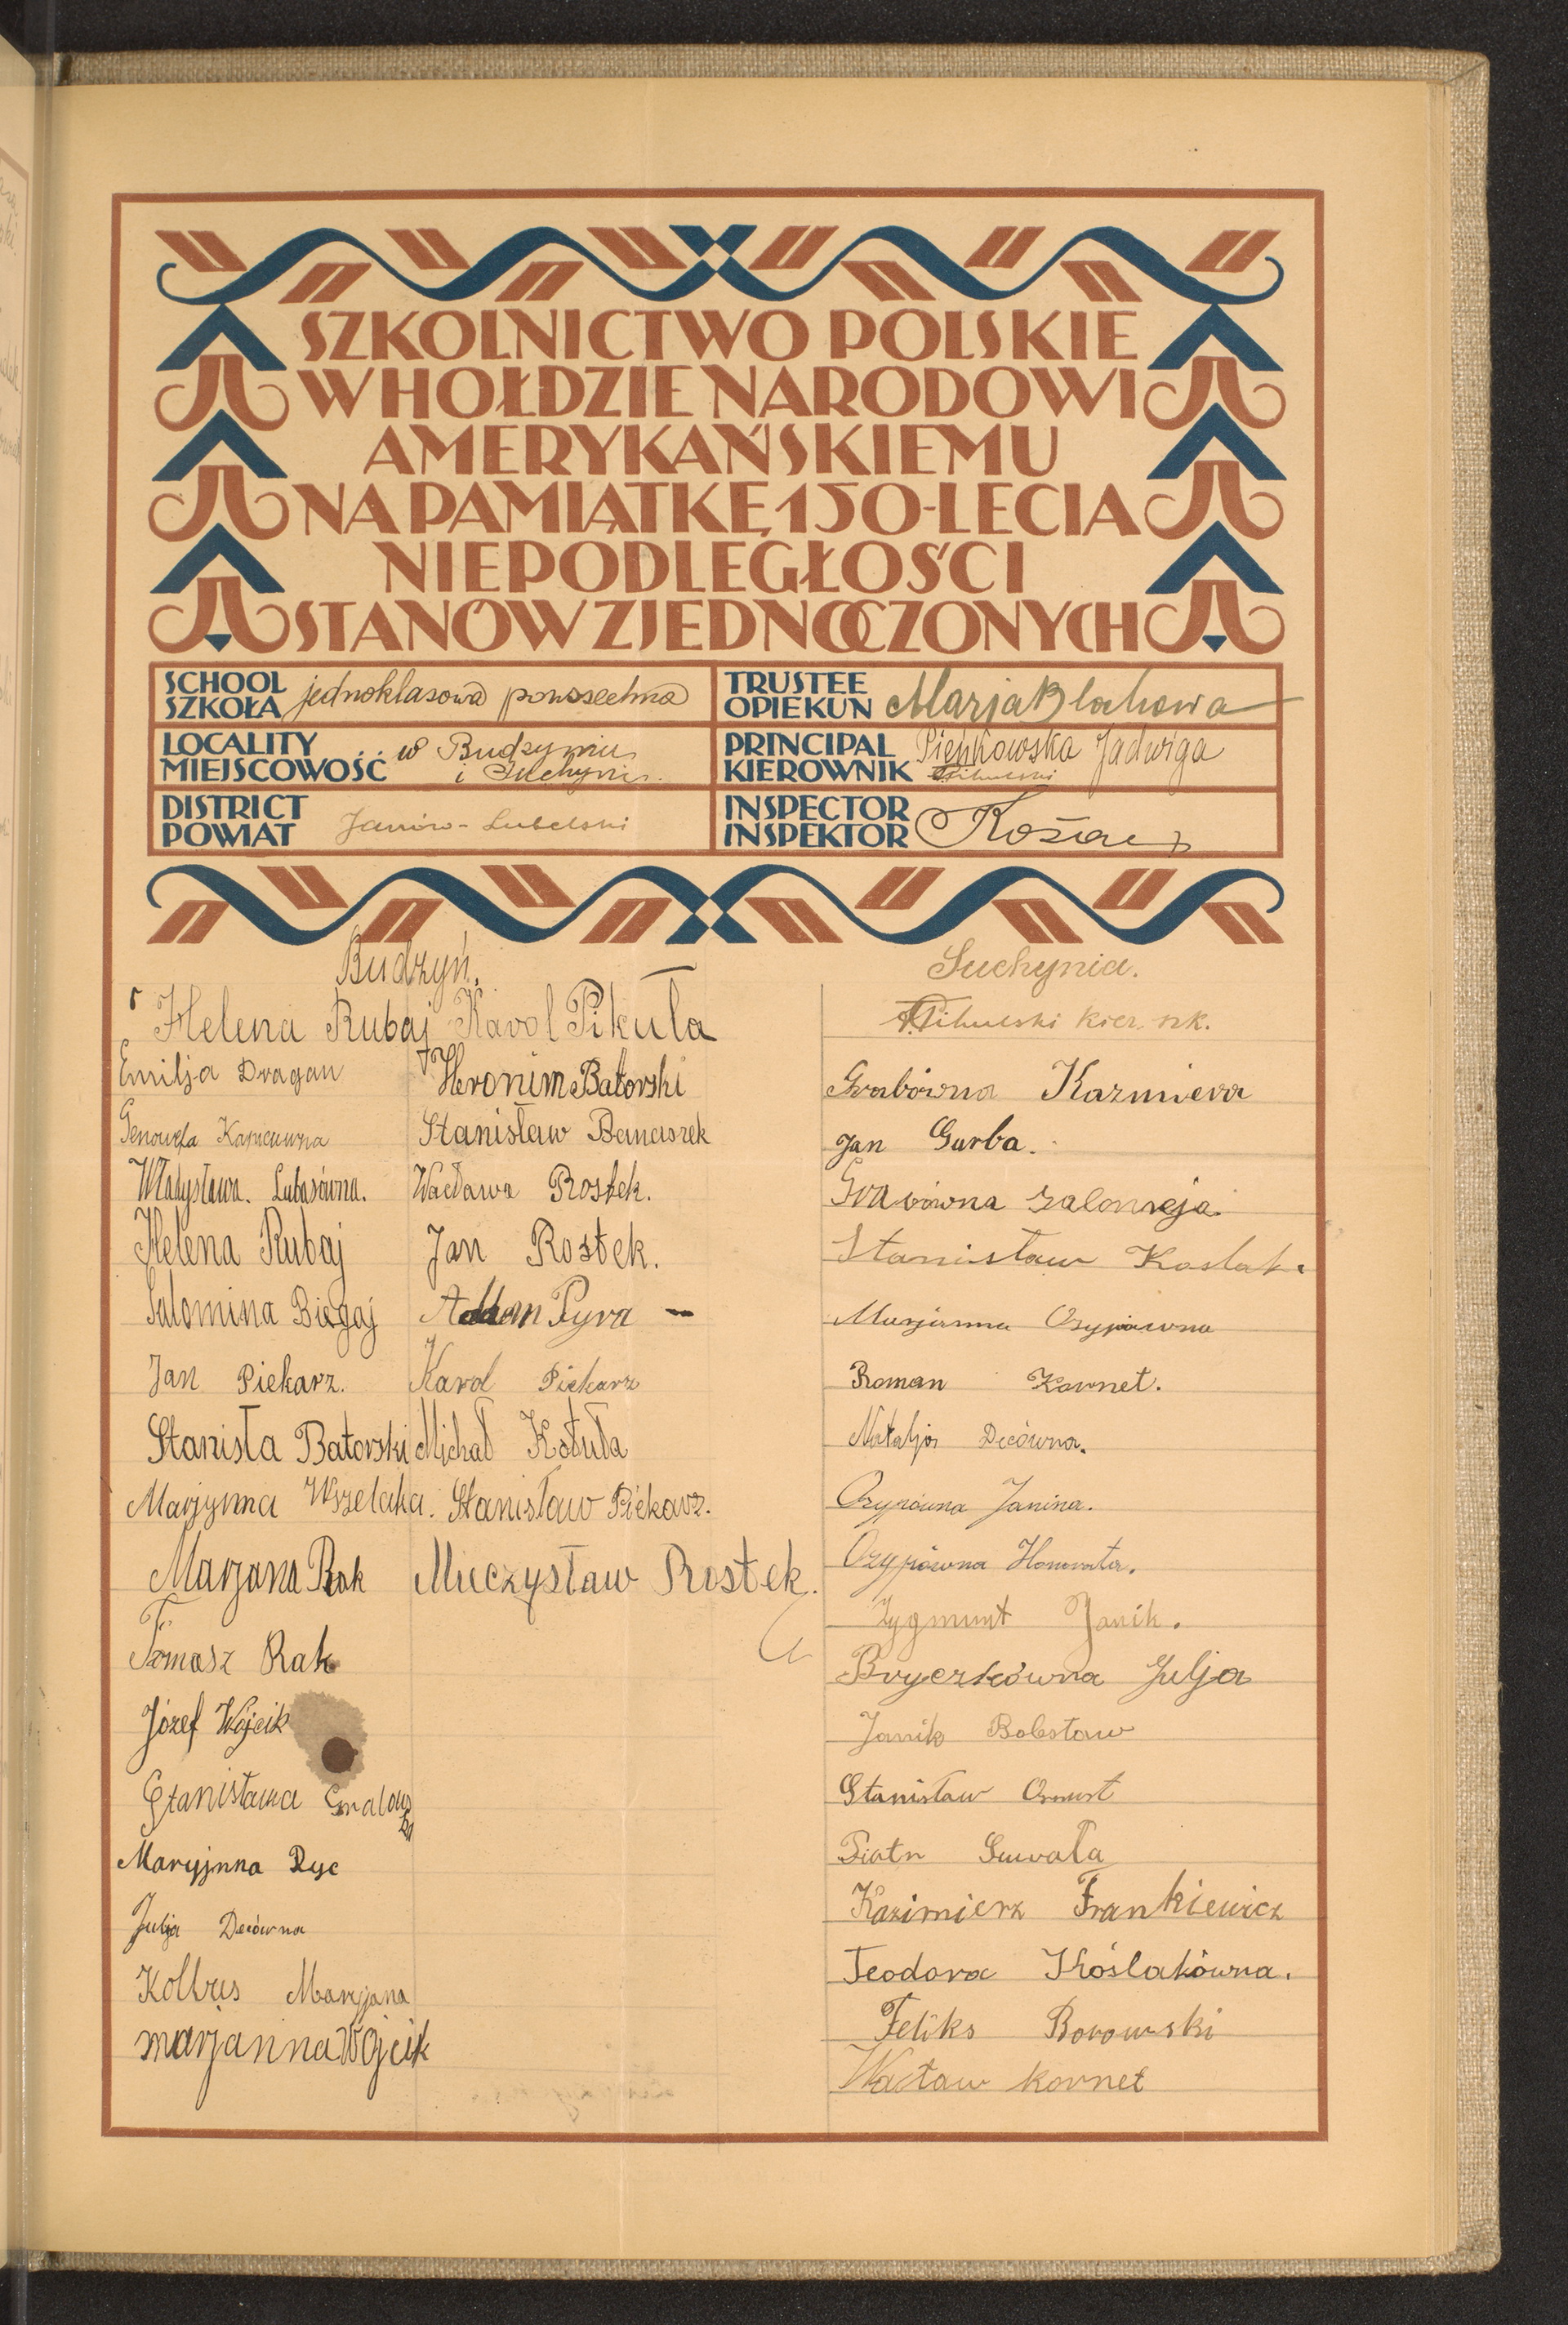 SZKOLNICTWO POLSKIE
W HOŁDZIE NARODOWI
AMERYKAŃSKIEMU
NA PAMIĄTKĘ 150-LECIA
NIEPODLEGŁOŚCI
STANÓW ZJEDNOCZONYCH
SCHOOL
SZKOŁA jednoklasowa powszechna
TRUSTEE
OPIEKUN Marja Blachowa
LOCALITY
MIEJSCOWOŚĆ w Budzyniu
i Suchyni
PRINCIPAL
KIEROWNIK Pieńkowska Jadwiga
DISTRICT
POWIAT Janów-Lubelski
INSPECTOR
INSPEKTOR
Budzyń.
Helena Rubaj
Emilja Dragan
Genowefa
Władysława. Lubasówna.
Helena Rubaj
Salomina Biegaj
Jan Piekarz.
Stanisła Batorski
Marjynna Wszelaka.
Marjana Rak
Tomasz Rak
Józef Wójcik
Stanisława
Maryjnna Dyc
Julja Decówna
Kołbus Maryjana
marjanna Wójcik
Karol Pikuła
Heronim Batorski
Stanisław Banaszek
Wacława Rostek.
Jan Rostek.
Adam Pyra
Karol Piekarz
Michał Kotuła
Stanisław Piekarz.
Mieczysław Rostek.
Suchynia.
kier. szk.
Grabówna Kazmiera
Jan Garba.
Salomeja
Stanisław Koslak.
Marjanna Ozypówna
Roman Kornet.
Natalja Decówna.
Ozypówna Janina.
Ozypówna Honorata.
Zygmunt Janik.
Bryczkówna Julja
Janik Bolesław
Stanisław
Piotr
Kazimierz Frankiewicz
Teodora Koślakówna.
Feliks Borowski
Wacław kornet